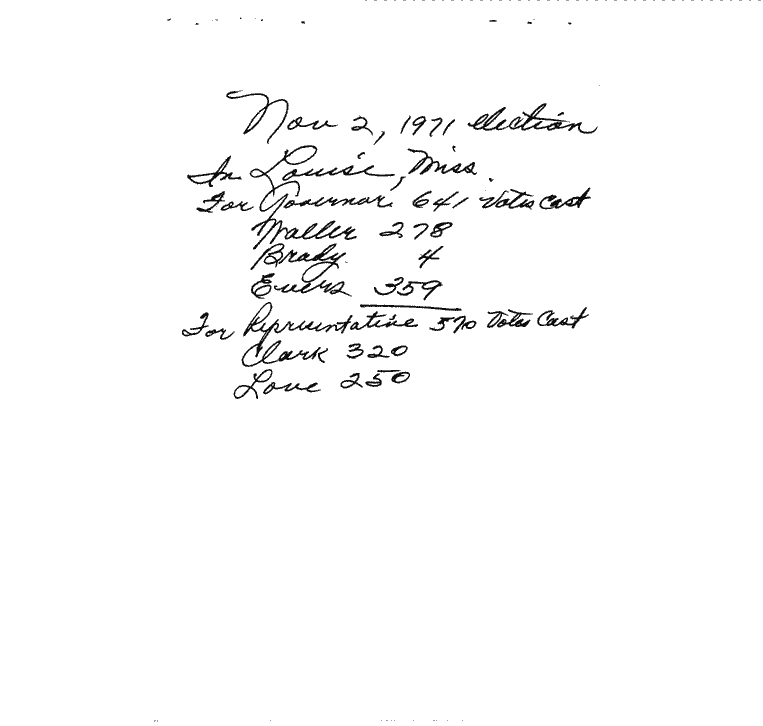 Nov 2, 1971 election
In Louise, Miss.
For Governor 641 Votes Cast
Waller 278
Brady 4
Evers 359
For Representative 570 Votes Cast
Clark 320
Love 250